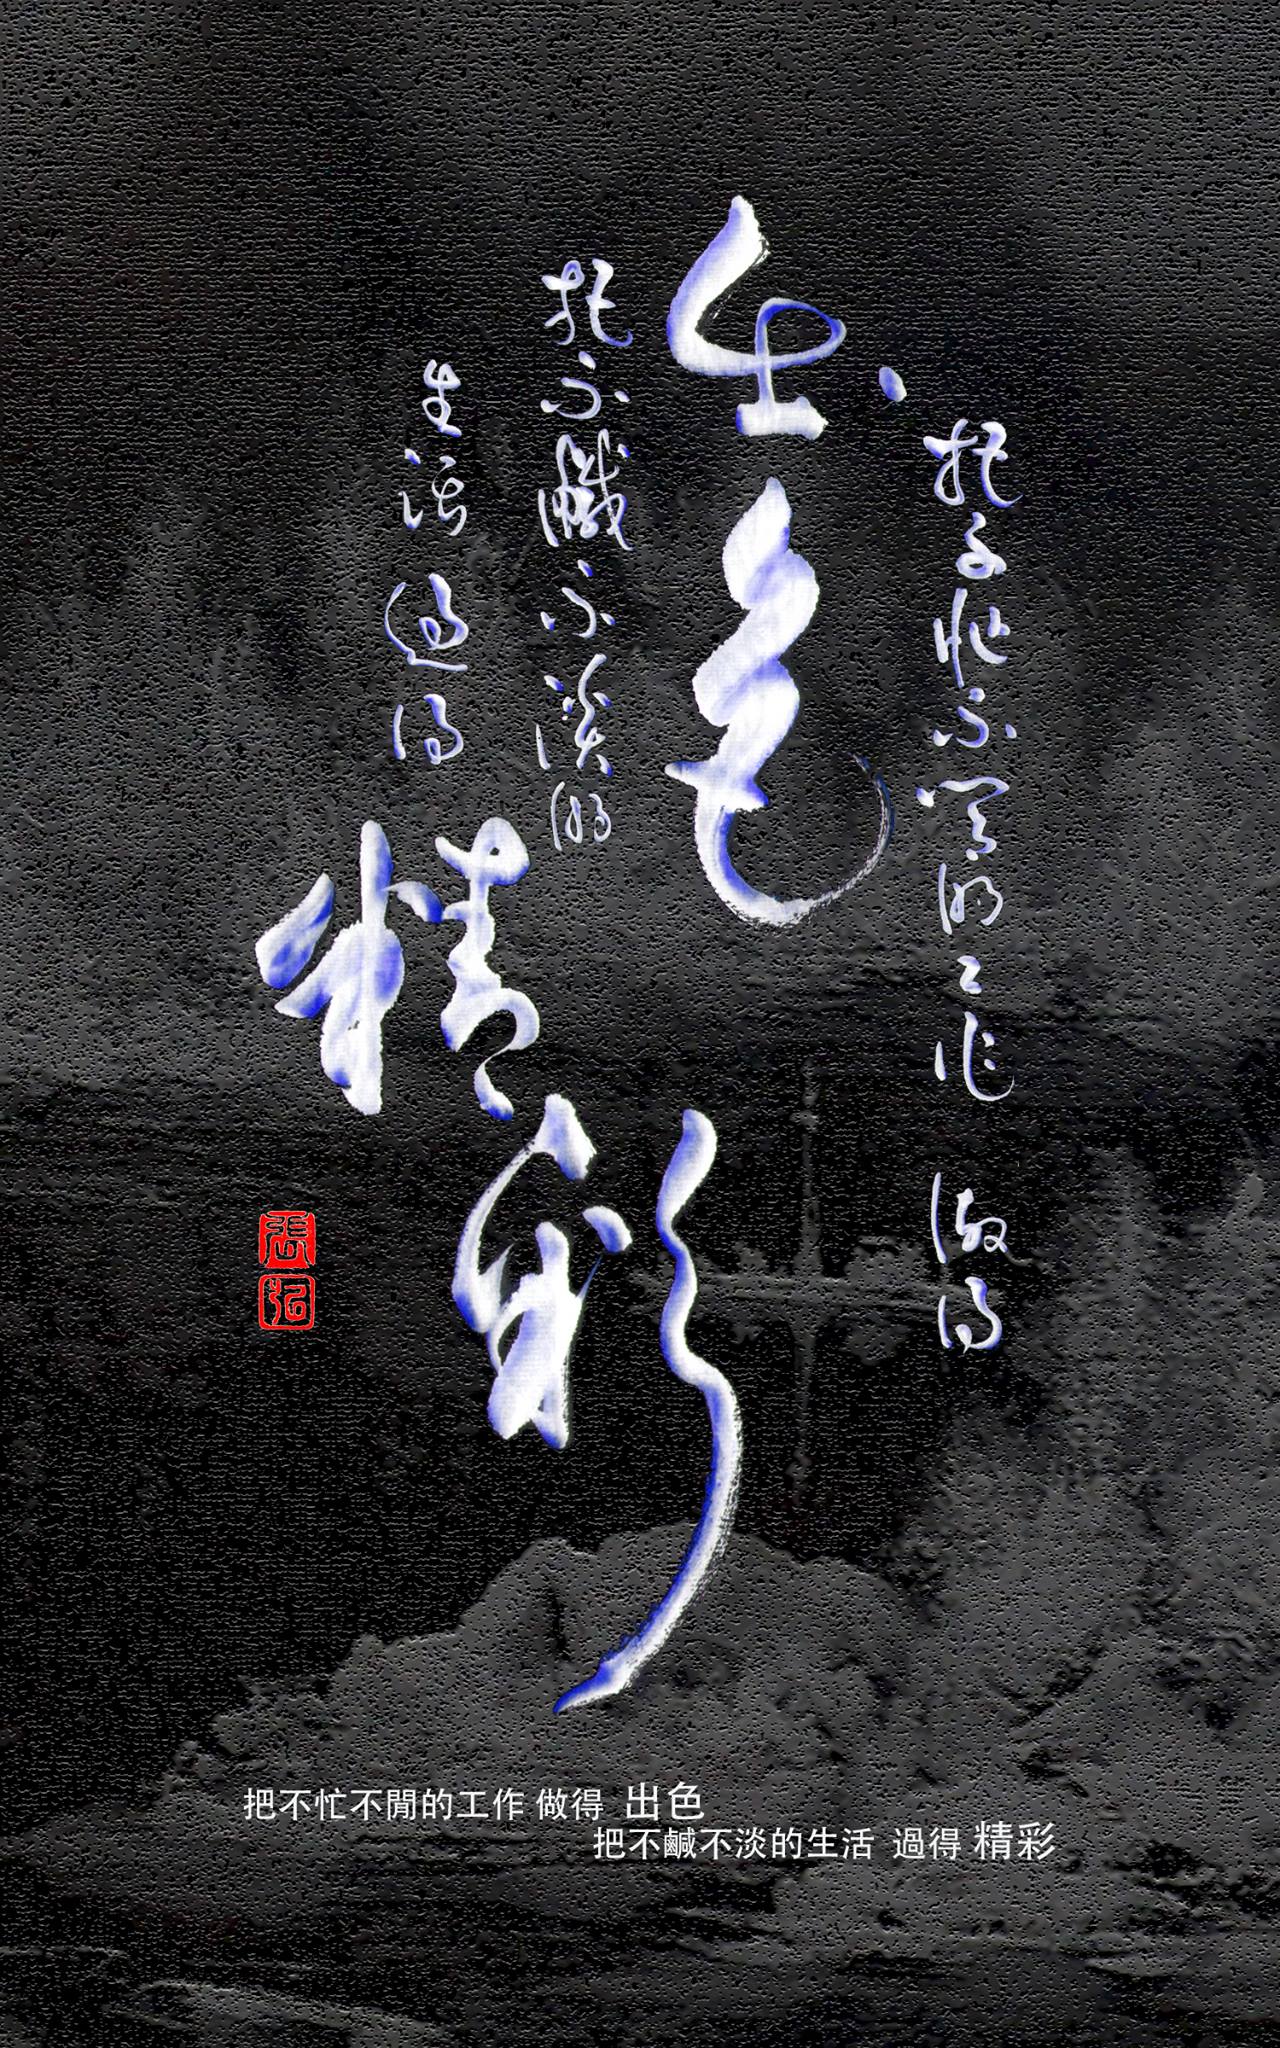 把不忙不閒的工作 做得
出色
把不鹹不淡的
生活 過得
精彩
張
把不忙不閒的工作 做得 出色
把不鹹不淡的生活 過得 精彩